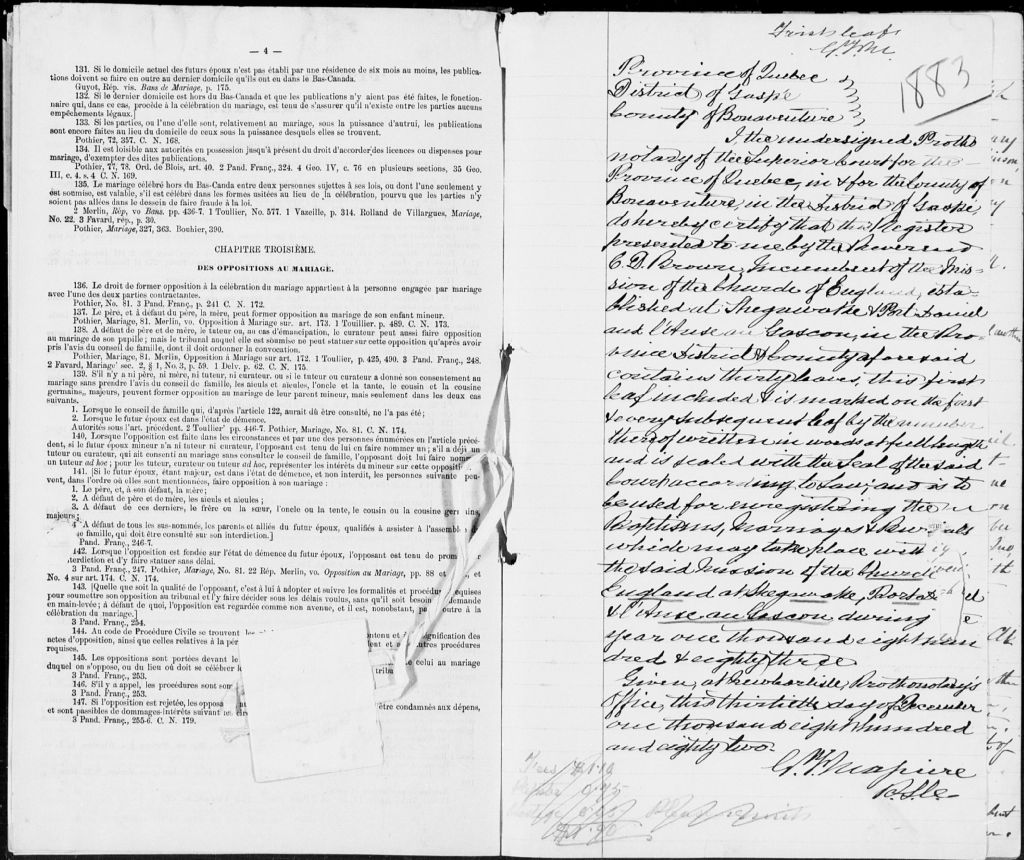 — 4 —
131. Si le domicile actuel des futurs époux n'est pas établi par une résidence de six mois au moins, les publica-
tions doivent se faire en outre au dernier domicile qu'ils ont eu dans le Bas-Canada.
Guyot, Rép. vis. Bans de Mariage, p. 175.
132. Si le dernier domicile est hors du Bas-Canada et que les publications n'y aient pas été faites, le fonction-
naire qui, dans ce cas, procède à la célébration du mariage, est tenu de s'assurer qu'il n'existe entre les parties aucuns
empêchements légaux.]
133. Si les parties, ou l'une d'elles sont, relativement au mariage, sous la puissance d'autrui, les publications
sont encore faites au lieu du domicile de ceux sous la puissance desquels elles se trouvent.
Pothier, 72, 357. C. N. 168.
134. Il est loisible aux autorités en possession jusqu'à présent du droit d'accorder des licences ou dispenses pour
mariage, d'exempter des dites publications.
Pothier, 77, 78. Ord. de Blois, art. 40. 2 Pand. Franç., 324. 4 Geo. IV, c. 76 en plusieurs sections, 35 Geo.
III, c. 4. s. 4 C. N. 169.
135. Le mariage célébré hors du Bas-Canda entre deux personnes sujettes à ses lois, ou dont l'une seulement y
est soumise, est valable, s'il est célébré dans les formes usitées au lieu de la célébration, pourvu que les parties n'y
soient pas allées dans le dessein de faire fraude à la loi.
2 Merlin, Rép, vo Bans. pp. 436-7. 1 Toullier, No. 577. 1 Vazeille, p. 314. Rolland de Villargues, Mariage,
No. 22. 3 Favard, rép., p. 30.
Pothier, Mariage, 327, 363. Bouhier, 390.
CHAPITRE TROISIÈME.
DES OPPOSITIONS AU MARIAGE.
136. Le droit de former opposition à la célébration du mariage appartient à la personne engagée par mariage
avec l'une des deux parties contractantes.
Pothier, No. 81. 3 Pand. Franç., p. 241 C. N. 172.
137. Le père, et à défaut du père, la mère, peut former opposition au mariage de son enfant mineur.
Pothier, Mariage, 81. Merlin, vo. Opposition à Mariage sur. art. 173. 1 Touillier. p. 489. C. N. 173.
138. A défaut de père et de mère, le tuteur ou, au cas d'émancipation, le curateur peut aussi faire opposition
au mariage de son pupille; mais le tribunal auquel elle est soumise ne peut statuer sur cette opposition qu'après avoir
pris l'avis du conseil de famille, dont il doit ordonner la convocation.
Pothier, Mariage, 81. Merlin, Opposition à Mariage sur art. 172. 1 Toullier, p. 425, 490. 3 Pand. Franç., 248.
2 Favard, Mariage' sec. 2, § 1, No. 3, p. 59. 1 Delv. p. 62. C. N. 175.
139. S'il n'y a ni père, ni mère, ni tuteur, ni curateur. ou si le tuteur ou curateur a donné son consentement au
mariage sans prendre l'avis du conseil de famille, les aieuls et aieules, l'oncle et la tante, le cousin et la cousine
germains, majeurs, peuvent former opposition au mariage de leur parent mineur, mais seulement dans les deux cas
suivants.
1. Lorsque le conseil de famille qui, d'après l'article 122, aurait dû être consulté, ne l'a pas été;
2. Lorsque le futur époux est dans l'état de démence.
Autorités sous l'art. précédent. 2 Toullier' pp. 446-7. Pothier, Mariage, No. 81. C. N. 174.
140, Lorsque l'opposition est faite dans les circonstances et par une des personnes énumérées en l'article précé-
dent, si le futur époux mineur n'a ni tuteur ni curateur, l'opposant est tenu de lui en faire nommer un; s'il a déjà un
tuteur ou curateur, qui ait consenti au mariage sans consulter le conseil de famille, l'opposant doit lui faire nommer
un tuteur ad hoc; pour les tuteur, curateur ou tuteur ad hoc, représenter les intérêts du mineur sur cette opposition
141. [Si le futur époux, étant majeur, est dans l'état de démence, et non interdit, les personnes suivantes peu-
vent, dans l'ordre où elles sont mentionnées, faire opposition à son mariage:
1. Le père, et, à son défaut, la mère;
2. A défaut de père et de mère, les aieuls et aieules;
3. A défaut de ces derniers, le frère ou la sœur, l'oncle ou la tante, le cousin ou la cousine germains,
majeurs;
4 A défaut de tous les sus-nommés, les parents et alliés du futur époux, qualifiés à assister à l'assemblée
de famille, qui doit être consulté sur son interdiction.]
Pand. Franç., 246-7.
142. Lorsque l'opposition est fondée sur l'état de démence du futur époux, l'opposant est tenu de
interdiction et d'y faire statuer sans délai.
3 Pand. Franç., 247. Pothier, Mariage, No. 81. 22 Rép. Merlin, vo. Opposition au Mariage, pp. 88 et , et
No. 4 sur art. 174. C. N. 174.
143. [Quelque soit la qualité de l'opposant, c'est à lui à adopter et suivre les formalités et procédures requises
pour soumettre son opposition au tribunal et l'y faire décider sous les délais voulus, sans qu'il soit besoin
en main-levée; à défaut de quoi, l'opposition est regardée comme non avenue, et il est, nonobstant, passé outre à la
célébration du mariage.]
3 Pand. Franç., 254.
144. Au code de Procédure Civile se trouvent les contenu et signification des
actes d'opposition, ainsi que celles relatives à la et autres procédures
requises.
145. Les oppositions sont portées devant le celui au mariage
duquel on s'oppose, ou du lieu où doit se célébrer
3 Pand. Franç., 253.
146. S'il y a appel, les procédures sont
3 Pand. Franç., 253.
147. Si l'opposition est rejetée, les être condamnés aux dépens,
et sont passibles de dommages-intérêts suivant
3 Pand. Franç., 255-6. C. N. 179.
First leaf
G.F.M.
1883
Province of Quebec
District of Gaspé
County of Bonaventure
I, the undersigned Protho
notary of the Superior Court for the
Province of Quebec, in & for the County of
Bonaventure, in the District of Gaspé
do hereby certify that this Register
presented to me by the Reverend
C. D. Brown, Incumbent of the Mis-
sion of the Church of England, esta-
blished at Shegawake & Port Daniel
and L'Anse au Gascon, in the Pro-
vince District & County aforesaid
contains thirty leaves, this first
leaf included & is marked on the first
& every subsequent leaf by the number
thereof written in words at full length
and is sealed with the Seal of the said
Court according to Law; and is to
be used for enregistering the
Baptisms, Marriages & Burials
which may take place within
the said Mission of the Church
England at Shegawake, Port Daniel
& L'Anse au Gascon during
year one thousand eight hun
dred & eighty three
Given, at New Carlisle, Prothonotary's
Office, this thirtieth day of December
one thousand eight hundred
and eighty two.
P.S.C.